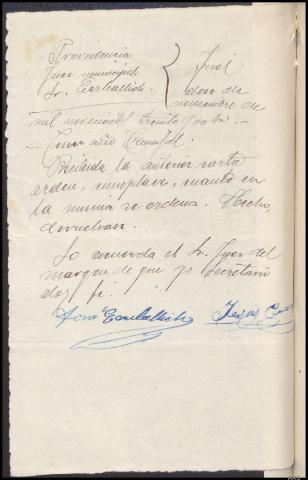 Providencia
Juez municipal
Sr. Carballido
dos de
noviembre de
mil novecientos treinta y ocho.
Tercer año Triunfal.
Recibida la anterior carta
orden, cumplase cuanto en
la misma se ordena. Hecho,
devuelvase.
Lo acuerda el Sr. Juez del
margen de que yo Secretario
doy fé.
Carballido Jesús